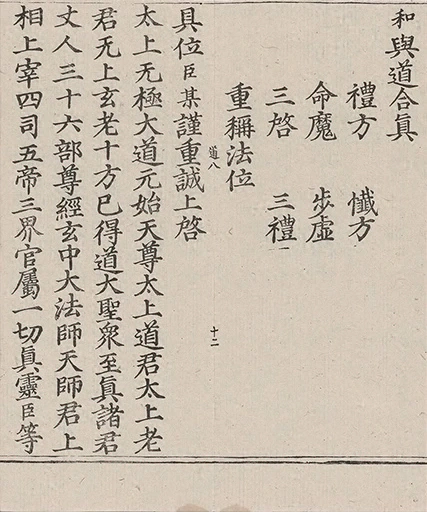 和與道合眞
禮方　懺方
命魔　步虛
三啓　三禮
重稱法位
道八　十二
具位臣某謹重誠上啓
太上无極大道元始天尊太上道君太上老
君无上玄老十方已得道大聖衆至眞諸君
丈人三十六部尊經玄中大法師天師君上
相上宰四司五帝三界官屬一切眞靈臣等